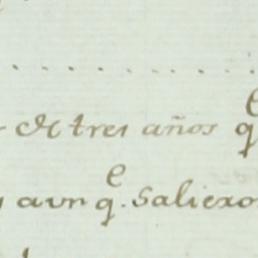 de tres años q^e
aun q^e. saliero